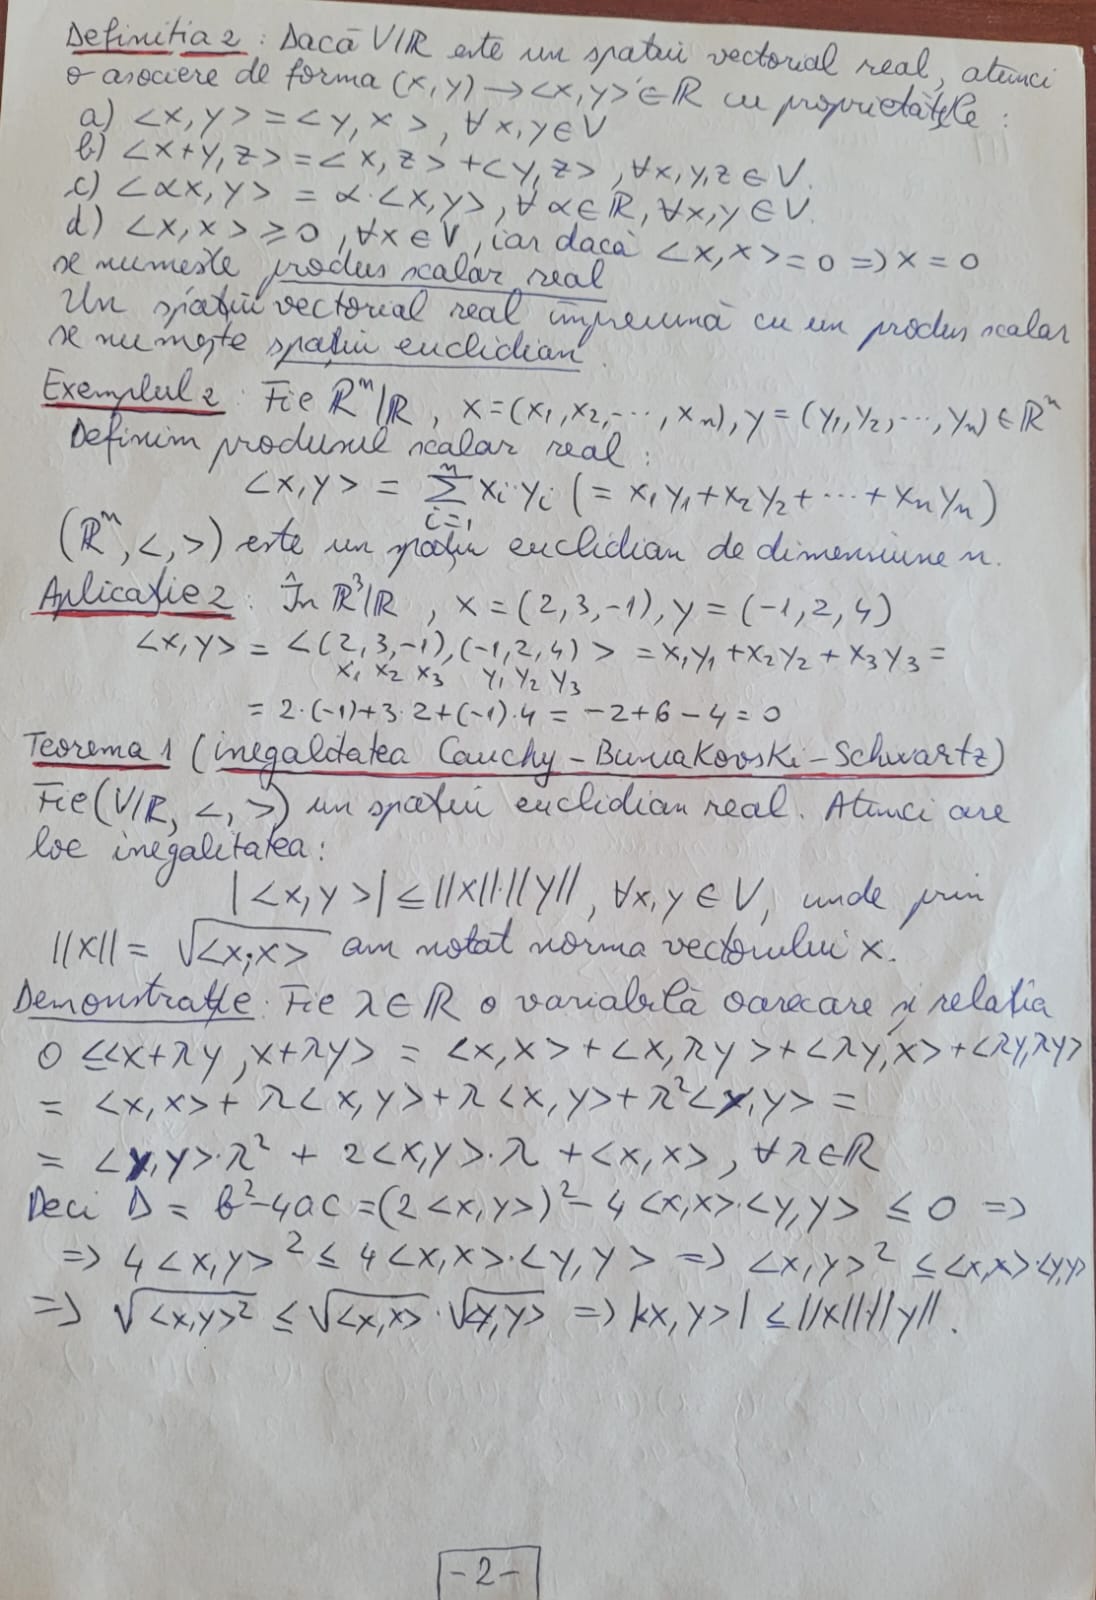 Definitia 2 : Dacă V/ℝ este un spatiu vectorial real, atunci
o asociere de forma (x,y) → <x,y> ∈ ℝ cu proprietățile :
a) <x,y> = <y,x> , ∀x,y∈V
b) <x+y,z> = <x,z> + <y,z> , ∀x,y,z ∈ V.
c) <αx,y> = α·<x,y> , ∀α∈ℝ, ∀x,y ∈ V.
d) <x,x> ≥ 0 , ∀x∈V , iar dacă <x,x> = 0 => x = 0
se numește produs scalar real
Un spațiu vectorial real împreună cu un produs scalar
se numește spațiu euclidian.
Exemplul 2 : Fie ℝⁿ/ℝ , x = (x₁,x₂,...,xₙ), y = (y₁,y₂,...,yₙ) ∈ ℝⁿ
Definim produsul scalar real :
<x,y> = ∑ᵢ₌₁ⁿ xᵢ·yᵢ (= x₁y₁+x₂y₂+...+xₙyₙ)
(ℝⁿ, <,>) este un spațiu euclidian de dimensiune n.
Aplicație 2 : În ℝ³/ℝ , x = (2,3,-1), y = (-1,2,4)
<x,y> = <(2,3,-1),(-1,2,4)> = x₁y₁ + x₂y₂ + x₃y₃ =
x₁ x₂ x₃ y₁ y₂ y₃
= 2·(-1)+3·2+(-1)·4 = -2+6-4 = 0
Teorema 1 (inegalitatea Cauchy-Buniakovski-Schwartz)
Fie (V/ℝ, <,>) un spațiu euclidian real. Atunci are
loc inegalitatea :
|<x,y>| ≤ ||x||·||y|| , ∀x,y ∈ V, unde prin
||x|| = √<x,x> am notat norma vectorului x.
Demonstrație. Fie λ∈ℝ o variabilă oarecare și relația
0 ≤ <x+λy, x+λy> = <x,x> + <x,λy> + <λy,x> + <λy,λy>
= <x,x> + λ<x,y> + λ<x,y> + λ²<y,y> =
= <y,y>·λ² + 2<x,y>·λ + <x,x> , ∀λ∈ℝ
Deci Δ = b²-4ac = (2<x,y>)² - 4<x,x>·<y,y> ≤ 0 =>
=> 4<x,y>² ≤ 4<x,x>·<y,y> => <x,y>² ≤ <x,x>·<y,y>
=> √<x,y>² ≤ √<x,x>·√<y,y> => |<x,y>| ≤ ||x||·||y||.
-2-